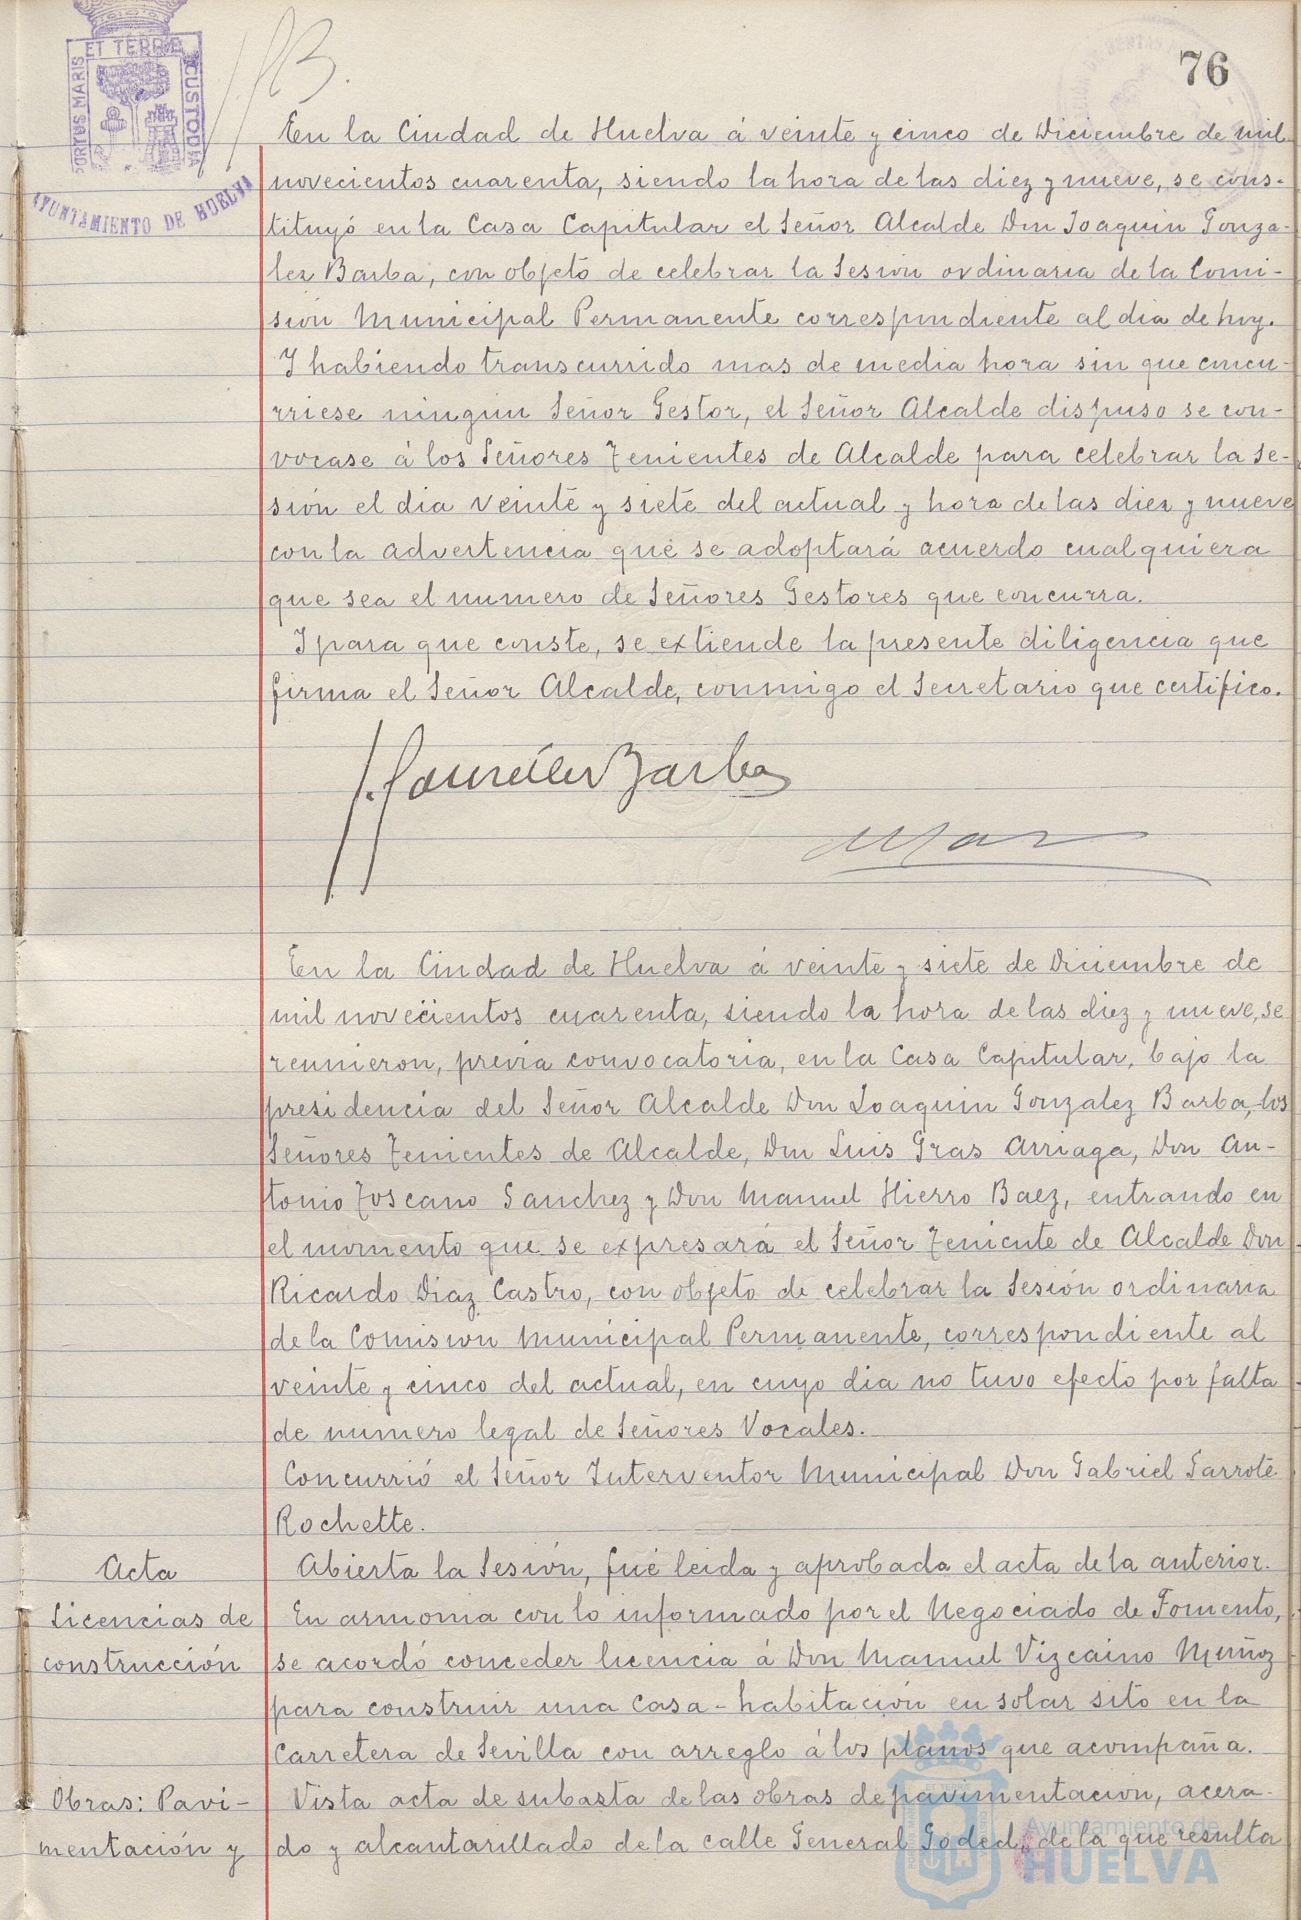 76
PORTUS MARIS ET TERRE CUSTODIA
AYUNTAMIENTO DE HUELVA
En la Ciudad de Huelva á veinte y cinco de Diciembre de mil
novecientos cuarenta, siendo la hora de las diez y nueve, se cons-
tituyó en la Casa Capitular el Señor Alcalde Don Joaquin Gonza-
lez Barba, con objeto de celebrar la sesion ordinaria de la Comi-
sión Municipal Permanente correspondiente al dia de hoy.
Y habiendo transcurrido mas de media hora sin que concu-
rriese ningun Señor Gestor, el Señor Alcalde dispuso se con-
vocase á los Señores Tenientes de Alcalde para celebrar la se-
sión el dia veinte y siete del actual y hora de las diez y nueve
con la advertencia que se adoptará acuerdo cualquiera
que sea el numero de Señores Gestores que concurra.
Y para que conste, se extiende la presente diligencia que
firma el Señor Alcalde, conmigo el Secretario que certifico.
J. González Barba
En la Ciudad de Huelva á veinte y siete de Diciembre de
mil novecientos cuarenta, siendo la hora de las diez y nueve, se
reunieron, previa convocatoria, en la Casa Capitular, bajo la
presidencia del Señor Alcalde Don Joaquin Gonzalez Barba, los
Señores Tenientes de Alcalde, Don Luis Gras Arriaga, Don An-
tonio Toscano Sanchez y Don Manuel Hierro Baez, entrando en
el momento que se expresará el Señor Teniente de Alcalde Don
Ricardo Diaz Castro, con objeto de celebrar la sesión ordinaria
de la Comision Municipal Permanente, correspondiente al
veinte y cinco del actual, en cuyo dia no tuvo efecto por falta
de numero legal de Señores Vocales.
Concurrió el Señor Interventor Municipal Don Gabriel Garrote
Rochette.
Acta
Abierta la sesión, fué leida y aprobada el acta de la anterior.
Licencias de
construcción
En armonia con lo informado por el Negociado de Fomento,
se acordó conceder licencia á Don Manuel Vizcaino Muñoz
para construir una casa-habitación en solar sito en la
Carretera de Sevilla con arreglo á los planos que acompaña.
Obras: Pavi-
mentación y
Vista acta de subasta de las obras de pavimentacion, acera-
do y alcantarillado de la calle General Goded, de la que resulta
Ayuntamiento de
HUELVA